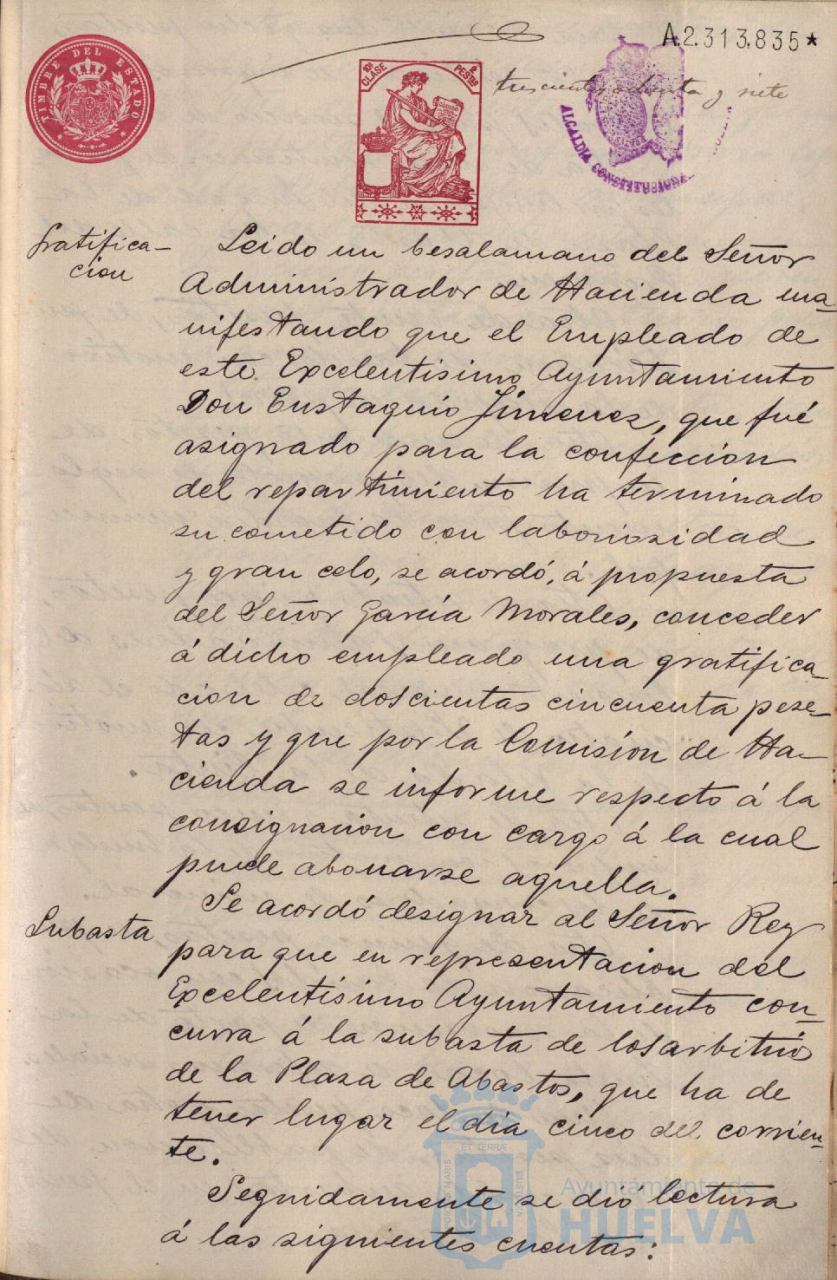 A.2.313.835*
TIMBRE DEL ESTADO
10ª CLASE
2 PESTAS
trescientos ochenta y siete
ALCALDIA CONSTITUCIONAL
Gratifica-
cion
Leido un besalamano del Señor
Administrador de Hacienda ma-
nifestando que el Empleado de
este Excelentisimo Ayuntamiento
Don Eustaquio Jimenez, que fué
asignado para la confeccion
del repartimiento ha terminado
su cometido con laboriosidad
y gran celo, se acordó, á propuesta
del Señor García Morales, conceder
á dicho empleado una gratifica-
cion de doscientas cincuenta pese-
tas y que por la Comisión de Ha-
cienda se informe respecto á la
consignacion con cargo á la cual
puede abonarse aquella.
Subasta
Se acordó designar al Señor Rey
para que en representacion del
Excelentísimo Ayuntamiento con-
curra á la subasta de los arbitrios
de la Plaza de Abastos, que ha de
tener lugar el día cinco del corrien-
te.
Seguidamente se dió lectura
á las siguientes cuentas:
Ayuntamiento de
HUELVA